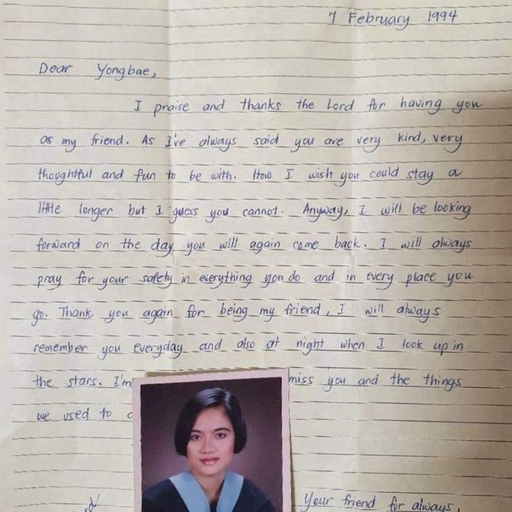 7 February 1994
Dear Yongbae,
I praise and thanks the Lord for having you
as my friend. As I've always said you are very kind, very
thoughtful and fun to be with. How I wish you could stay a
little longer but I guess you cannot. Anyway, I will be looking
forward on the day you will again come back. I will always
pray for your safety in everything you do and in every place you
go. Thank you again for being my friend, I will always
remember you everyday and also at night when I look up in
the stars. I'm miss you and the things
we used to
Your friend for always,